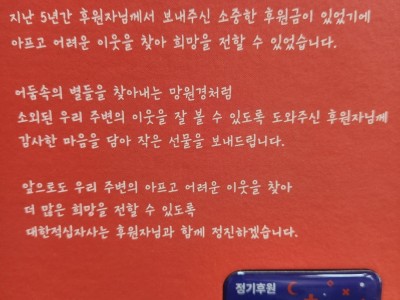 지난 5년간 후원자님께서 보내주신 소중한 후원금이 있었기에
아프고 어려운 이웃을 찾아 희망을 전할 수 있었습니다.
어둠속의 별들을 찾아내는 망원경처럼
소외된 우리 주변의 이웃을 잘 볼 수 있도록 도와주신 후원자님께
감사한 마음을 담아 작은 선물을 보내드립니다.
앞으로도 우리 주변의 아프고 어려운 이웃을 찾아
더 많은 희망을 전할 수 있도록
대한적십자사는 후원자님과 함께 정진하겠습니다.
정기후원